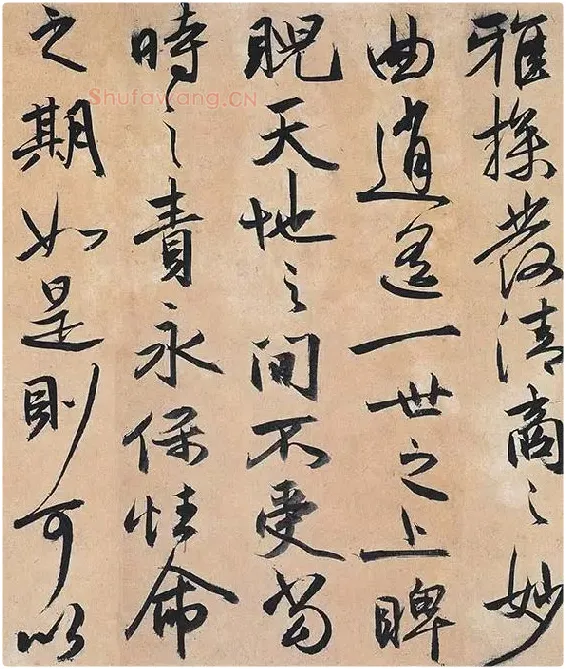 雅操發清商之妙
曲逍遙一世之上睥
睨天地之間不受當
時之責永保性命
之期如是則可以
ShufaWang.CN